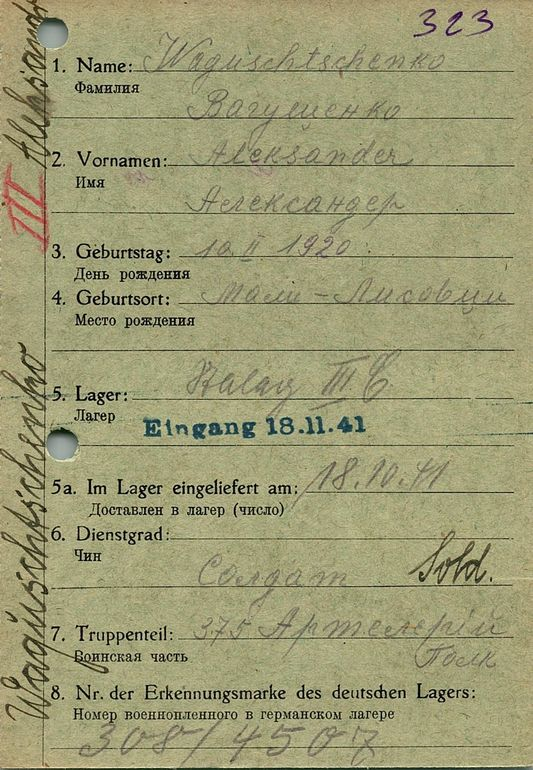 323
1. Name: Waguschtschenko
Фамилия
Вагущенко
2. Vornamen: Aleksander
Имя
Александер
3. Geburtstag: 10 II 1920
День рождения
4. Geburtsort: Мали-Лисовци
Место рождения
5. Lager: Stalag III C
Лагер
Eingang 18.11.41
5a. Im Lager eingeliefert am: 18.10.41
Доставлен в лагер (число)
6. Dienstgrad:
Чин
Солдат Sold.
7. Truppenteil: 375 Артелерій
Воинская часть Полк
8. Nr. der Erkennungsmarke des deutschen Lagers:
Номер военнопленного в германском лагере
308/4507
Waguschtschenko III Aleksand